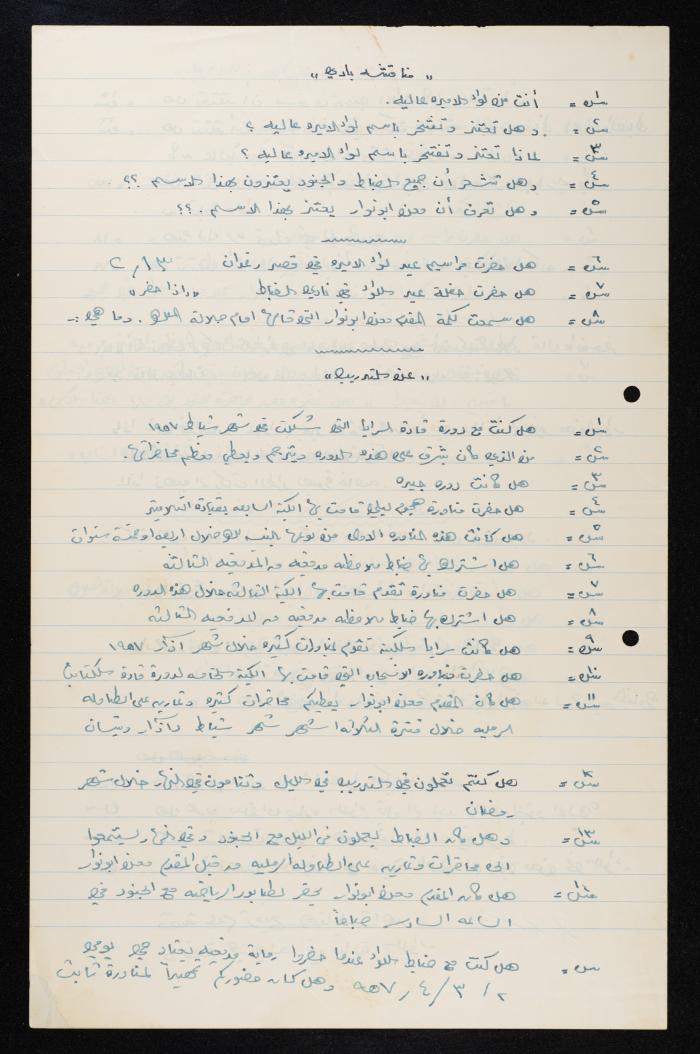 « مناقشة بادي »
س١ = أنت من لواء الاميره عاليه .
س٢ = وهل تعتز وتفتخر باسم لواء الاميره عاليه ؟
س٣ = لماذا تعتز وتفتخر باسم لواء الاميره عاليه ؟
س٤ = وهل تشعر أن جميع الضباط والجنود يعتزون بهذا الاسم ؟؟
س٥ = وهل تعرف أن معن ابونوار يعتز بهذا الاسم . ؟؟
س٦ = هل حضرت مراسيم عيد لواء الاميره في قصر رغدان ١٣/٢
س٧ = هل حضرت حفلة عيد اللواء في نادي الضباط « اذا حضر »
س٨ = هل سمعت كلمة المقدم معن ابونوار التي قالها امام جلالة الملك . وما هي :-
« عن التدريب »
س١ = هل كنت مع دورة قادة السرايا التي شكلت في شهر شباط ١٩٥٧
س٢ = من الذي كان يشرف على هذه الدوره ويترجم ويعطي معظم محاضراتها .
س٣ = هل كانت دوره جيده
س٤ = هل حضرت مناورة هجوم ليلي قامت بها الكتيبة السابعه بقيادة
س٥ = هل كانت هذه المناوره الاولى من نوعها بالنسبه لك خلال اربعه او خمسة سنوات
س٦ = هل اشترك بها ضابط ملاحظه مدفعيه من المدفعيه الثالثه
س٧ = هل حضرت مناورة تقدم قامت بها الكتيبة الثالثه خلال هذه الدوره
س٨ = هل اشترك بها ضابط ملاحظه مدفعيه من المدفعيه الثالثه
س٩ = هل كانت سرايا الكتيبة تقوم بمناورات كثيره خلال شهر اذار ١٩٥٧
س١٠ = هل حضرت مناوره الانسحاب التي قامت بها الكتيبة الخامسه لدورة قادة الكتائب
س١١ = هل كان المقدم معن ابونوار يعطيكم محاضرات كثيره وتمارين على الطاوله
الرمليه خلال فترة الثلاثه اشهر شهر شباط واذار ونيسان
س١٢ = هل كنتم تعملون في التدريب في الليل وتنامون في النهار خلال شهر
رمضان
س١٣ = وهل كان الضباط يعملون في الليل مع الجنود وفي النهار يستمعوا
الى محاضرات وتمارين على الطاوله الرمليه من قبل المقدم معن ابونوار
س١٤ = هل كان المقدم معن ابونوار يحضر لطابور الرياضه مع الجنود في
الساعه السادسه صباحاً
س = هل كنت مع ضباط اللواء عندما حضروا رماية مدفعيه بعتاد حي يومي
٢ / ٣ / ٤ / ٩٥٧ وهل كان حضوركم تمهيداً لمناورة ثابت